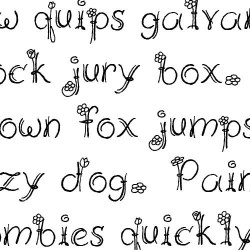 w quips galva
ock jury box.
own fox jumps
zy dog. Pain
ombies quickly